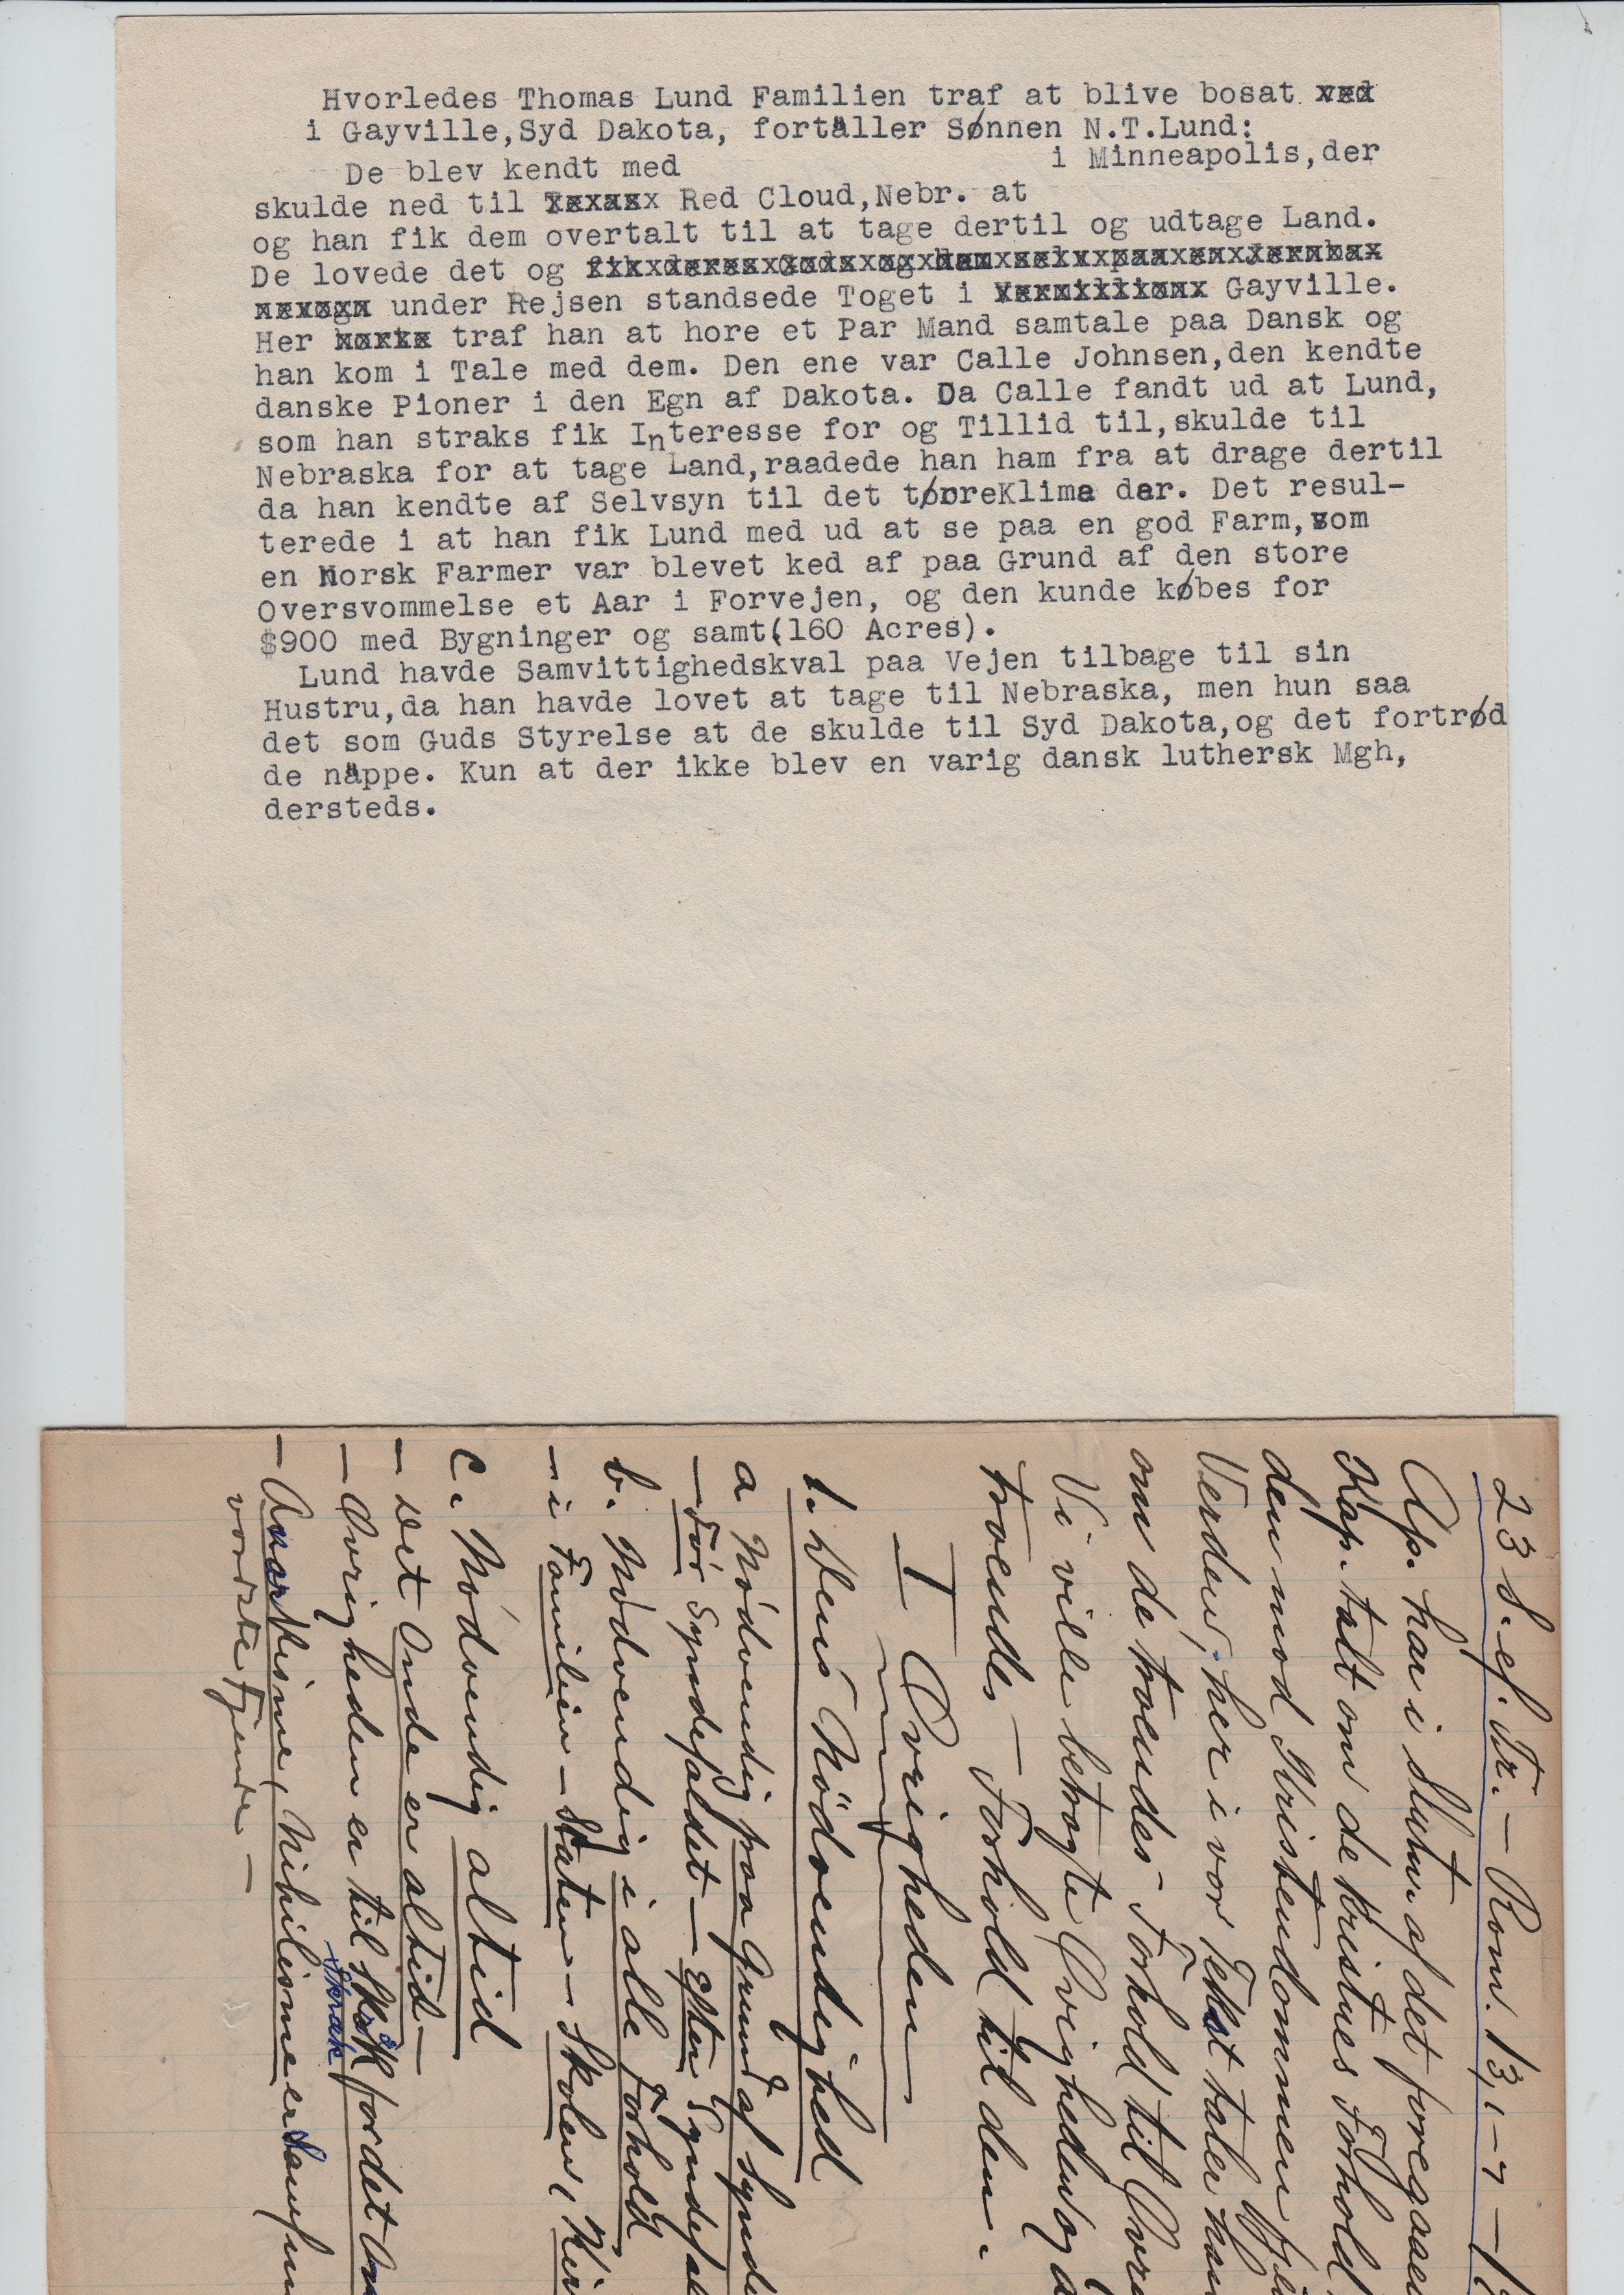 Hvorledes Thomas Lund Familien traf at blive bosat ved
i Gayville,Syd Dakota, fortäller Sønnen N.T.Lund:
De blev kendt med i Minneapolis,der
skulde ned til Red Cloud,Nebr. at
og han fik dem overtalt til at tage dertil og udtage Land.
De lovede det og fik deres Gods og ham selv paa en Jernba
nevogn under Rejsen standsede Toget i Vermillion Gayville.
Her hørte traf han at hore et Par Mand samtale paa Dansk og
han kom i Tale med dem. Den ene var Calle Johnsen,den kendte
danske Pioner i den Egn af Dakota. Da Calle fandt ud at Lund,
som han straks fik Interesse for og Tillid til,skulde til
Nebraska for at tage Land,raadede han ham fra at drage dertil
da han kendte af Selvsyn til det tørreKlima der. Det resul-
terede i at han fik Lund med ud at se paa en god Farm,som
en Norsk Farmer var blevet ked af paa Grund af den store
Oversvommelse et Aar i Forvejen, og den kunde købes for
$900 med Bygninger og samt(160 Acres).
Lund havde Samvittighedskval paa Vejen tilbage til sin
Hustru,da han havde lovet at tage til Nebraska, men hun saa
det som Guds Styrelse at de skulde til Syd Dakota,og det fortrød
de näppe. Kun at der ikke blev en varig dansk luthersk Mgh,
dersteds.
23 S. ef. Tr. — Rom. 13,1-7 —
Ap. har i Slutn. af det foregaaen
Kap. talt om de kristnes Forhold
den mod Kristendommen
Verden, her i vor Tekst taler han
om de troendes Forhold til Øvri
Vi ville betragte Øvrigheden og d
troendes — Forhold til den.
I Øvrigheden
1. Dens Nödvendighed
a Nödvendig paa Grund af Synde
— Før Syndefaldet — Efter Syndefal
b. Nödvendig i alle Forhold
— i Familien — Staten — Skolen, Kir
c. Nödvendig altid
— Det Onde er altid —
— Øvrigheden er til Skræk for det On
Skræk
— Anarkisme, Nihilisme er Samfun
vorste Fjende —